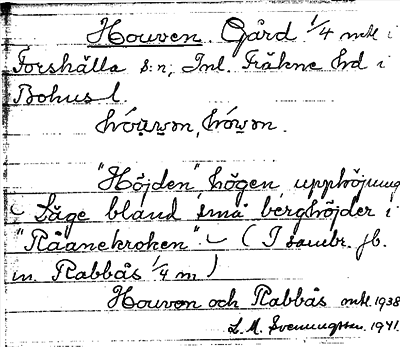 Houven. Gård 1/4 mtl i
Forshälla s:n, Inl. Fräkne hd i
Bohusl.
hóuwən, hówən.
"Höjden" högen, upphöjning
Läge bland små berghöjder i
"Råanekroken". (I sambr. fb.
m. Rabbås 1/4 m)
Houven och Rabbås mtl. 1938
L. M. Svenungsson. 1941